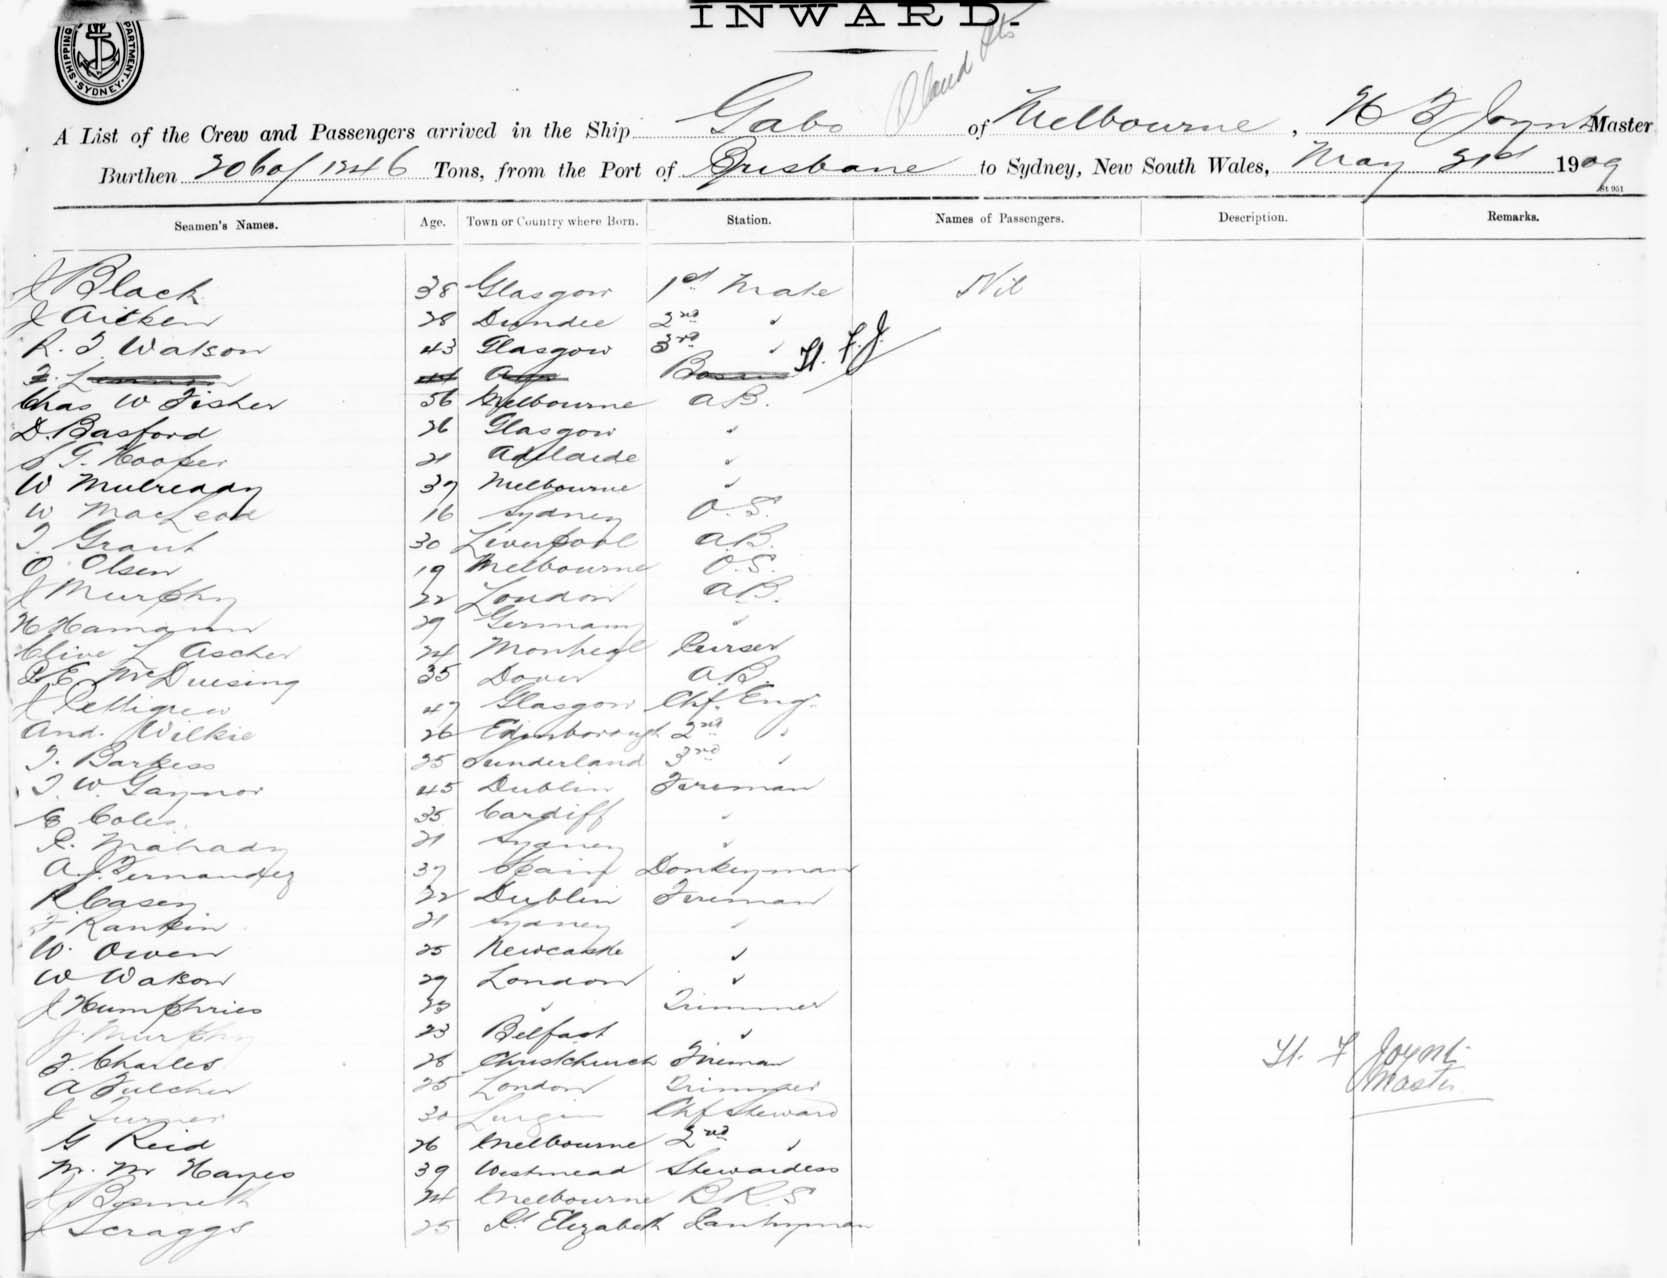 INWARD.
SHIPPING DEPARTMENT. SYDNEY
A List of the Crew and Passengers arrived in the Ship Gabo of Melbourne, H F Joynt Master
Burthen 2060/1246 Tons, from the Port of Brisbane to Sydney, New South Wales, May 1909
St 951
Seamen's Names. Age. Town or Country where Born. Station. Names of Passengers. Description. Remarks.
J Black 38 Glasgow 1st Mate Nil
J Aitken 28 Dundee 2nd "
R. F. Watson 43 Glasgow 3rd " H. F. J.
Chas W Fisher 56 Melbourne A.B.
D. Basford 26 Glasgow "
S G. Hooper 21 Adelaide "
W Mulready 37 Melbourne "
W MacLeod 16 Sydney O.S.
T. Grant 30 Liverpool A.B.
O Olsen 19 Melbourne O.S.
J Murphy 22 London A.B.
H Hamann 29 Germany "
Clive L Ascher 24 Montreal Purser
E. McDuising 35 Dover A.B.
J Pettigrew 47 Glasgow Chf. Eng.
And. Wilkie 26 Edinborough 2nd "
T. Barkess 25 Sunderland 3rd "
T. W. Gaynor 45 Dublin Fireman
E Coles 35 Cardiff "
P. Mahady 21 Sydney "
A. J. Fernandez 37 Spain Donkeyman
R Casey 22 Dublin Fireman
F. Rankin 21 Sydney "
W. Owen 25 Newcastle "
W Watson 29 London "
J Humphries 23 " Trimmer
J. Murphy 23 Belfast "
F. Charles 26 Christchurch Fireman
A Fulcher 25 London Trimmer
J Turner 30 Lurgan Chf Steward
G Reid 26 Melbourne 2nd "
M. M Hayes 39 Westmead Stewardess
J Bennett 24 Melbourne B.R.S
J Scraggs 25 Pt Elizabeth Pantryman
H. F Joynt
Master